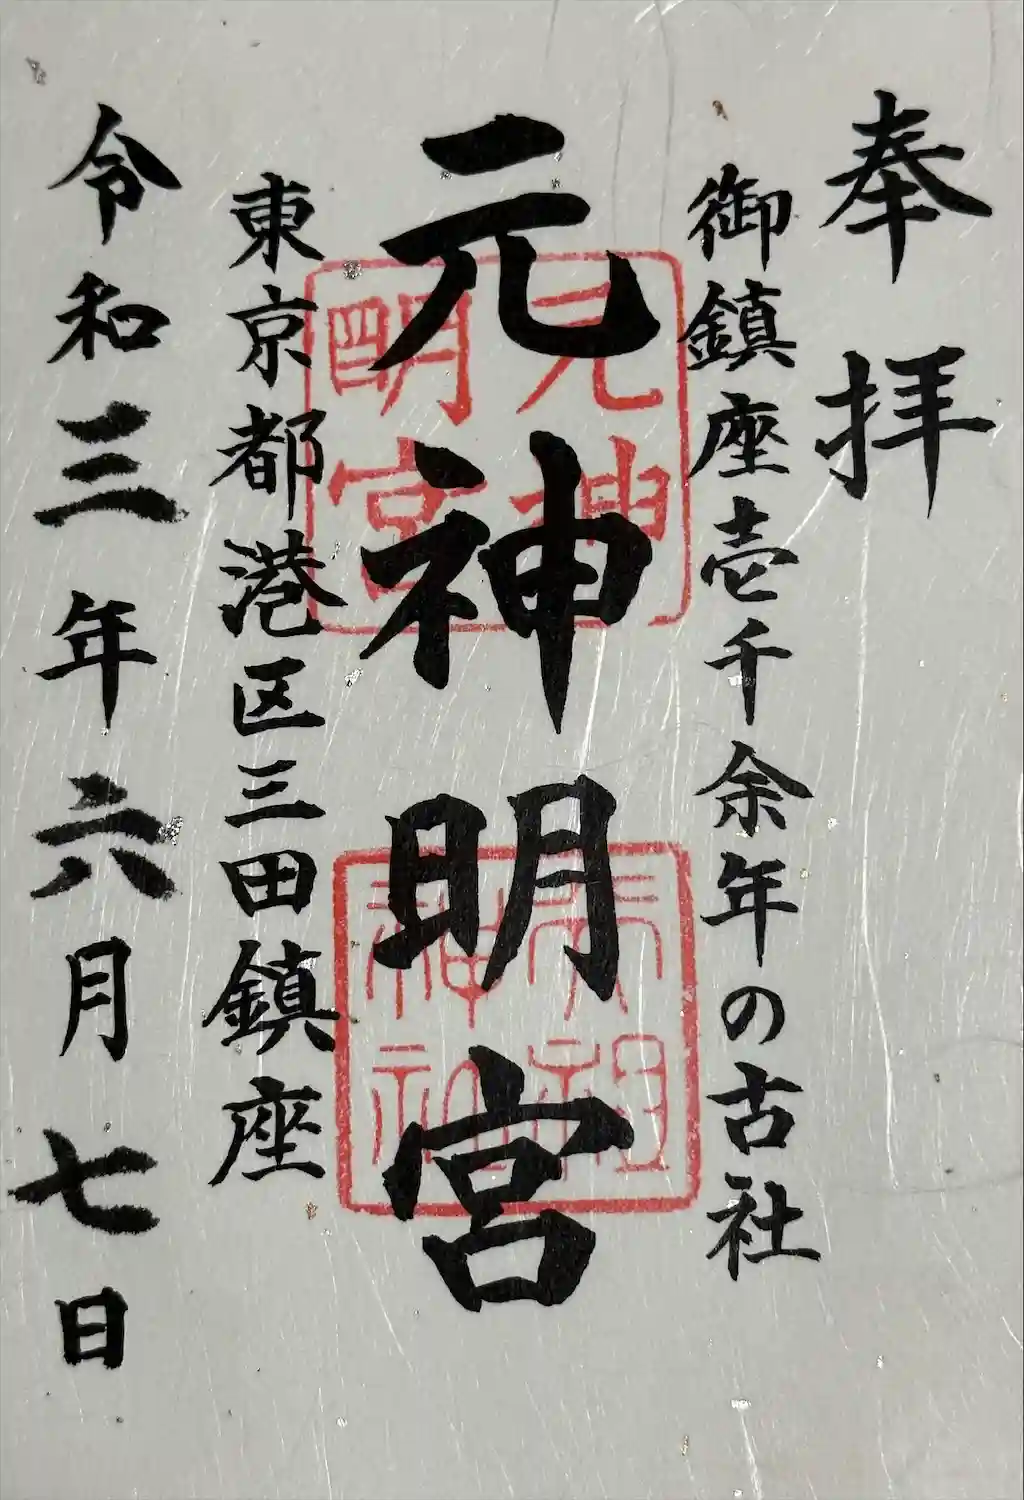 奉拝
御鎮座壱千余年の古社
元神明宮
元神明宮
東京都港区三田鎮座
令和三年六月七日